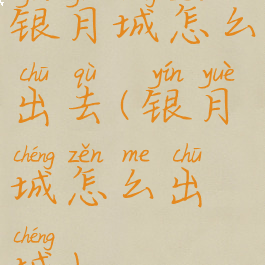 银月城怎么
chū qù yín yuè
出去(银月
chéng zěn me chū
城怎么出
chéng
城)